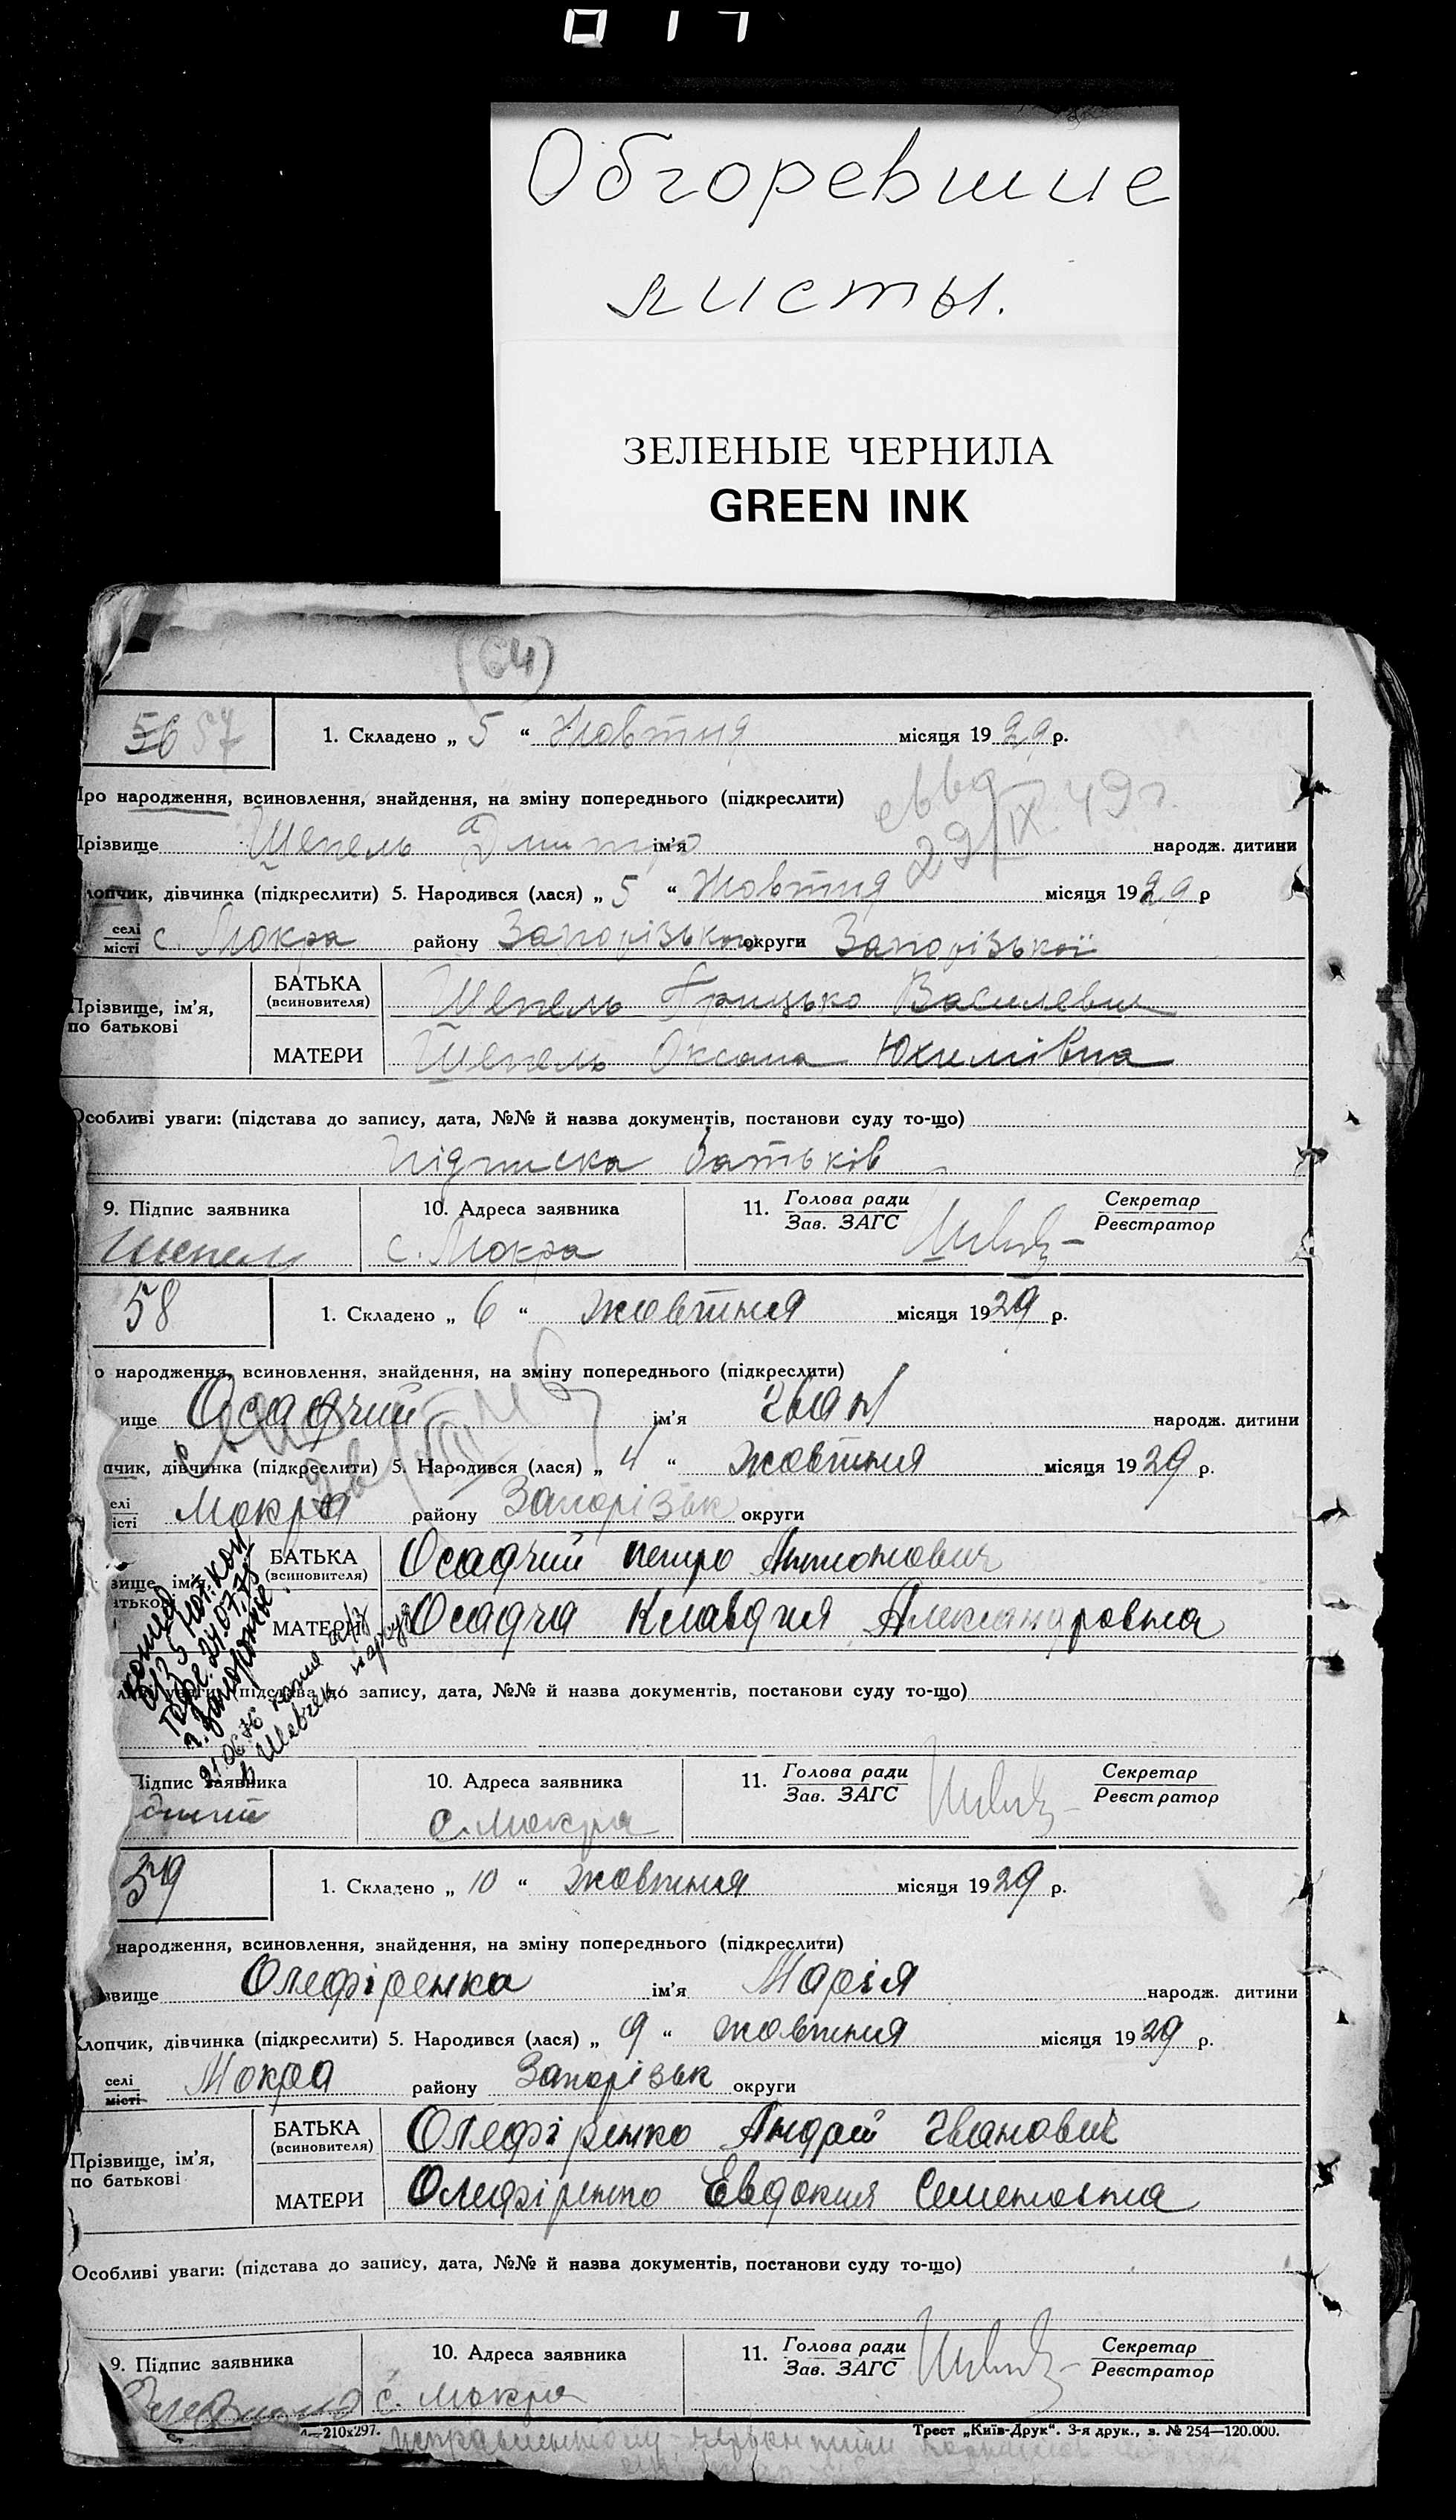 017
Обгоревшие
листы.
ЗЕЛЕНЫЕ ЧЕРНИЛА
GREEN INK
(64)
56 57
1. Складено „ 5 “ Жовтня місяця 1929 р.
Про народження, всиновлення, знайдення, на зміну попереднього (підкреслити)
Прізвище Шепель Дмитро ім'я народж. дитини
29/IX 49 г.
лопчик, дівчинка (підкреслити) 5. Народився (лася) „ 5 “ Жовтня місяця 1929 р
селі
місті с. Мокра району Запорізького округи Запорізької
Прізвище, ім'я,
по батькові
БАТЬКА
(всиновителя) Шепель Грицько Василевич
МАТЕРИ Шепель Оксана Юхимівна
Особливі уваги: (підстава до запису, дата, №№ й назва документів, постанови суду то-що)
Підписка батьків
9. Підпис заявника 10. Адреса заявника 11. Голова ради Секретар
Зав. ЗАГС Реєстратор
Шепель с. Мокра
58
1. Складено „ 6 “ жовтня місяця 1929 р.
о народження, всиновлення, знайдення, на зміну попереднього (підкреслити)
ище Осадчий ім'я Іван народж. дитини
пчик, дівчинка (підкреслити) 5. Народився (лася) „ 4 “ жовтня місяця 1929 р.
елі
істі Мокра району Запорізьк округи
вище, ім'я,
атько
БАТЬКА
(всиновителя) Осадчий петро Антонович
МАТЕРИ Осадча Клавдия Александровна
г. Запорожье
уваги: (підстава до запису, дата, №№ й назва документів, постакови суду то-що)
Підпис заявника 10. Адреса заявника 11. Голова ради Секретар
Зав. ЗАГС Реєстратор
дчий с. Мокра
59
1. Складено „ 10 “ жовтня місяця 1929 р.
народження, всиновлення, знайдення, на зміну попереднього (підкреслити)
звище Олефіренко ім'я Марія народж. дитини
Хлопчик, дівчинка (підкреслити) 5. Народився (лася) „ 9 “ жовтня місяця 1929 р.
селі
місті Мокра району Запорізьк округи
Прізвище, ім'я,
по батькові
БАТЬКА
(всиновителя) Олефіренко Андрей Іванович
МАТЕРИ Олефіренко Евдокия Семеновна
Особливі уваги: (підстава до запису, дата, №№ й назва документів, постанови суду то-що)
9. Підпис заявника 10. Адреса заявника 11. Голова ради Секретар
Зав. ЗАГС Реєстратор
с. Мокра
—210х297. Трест „Київ-Друк“. 3-я друк., з. № 254—120.000.